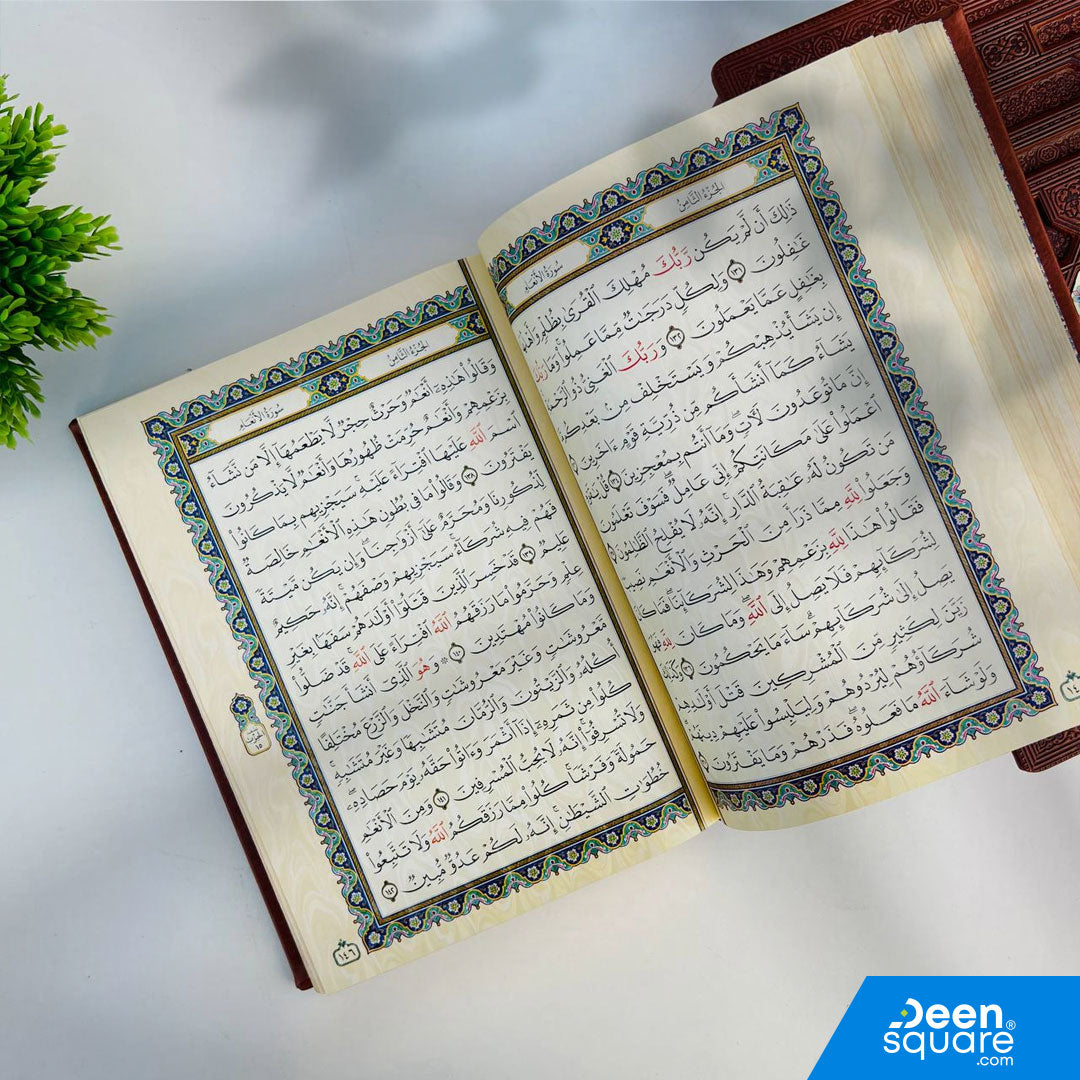 سُورَةُ الأَنْعَامِ
الجُزْءُ الثَّامِنُ
ذَٰلِكَ أَن لَّمْ يَكُن رَّبُّكَ مُهْلِكَ ٱلْقُرَىٰ بِظُلْمٍ
غَـٰفِلُونَ ١٣١ وَلِكُلٍّ دَرَجَـٰتٌ مِّمَّا عَمِلُوا۟ وَمَا
بِغَـٰفِلٍ عَمَّا يَعْمَلُونَ ١٣٢ وَرَبُّكَ ٱلْغَنِىُّ ذُو
إِن يَشَأْ يُذْهِبْكُمْ وَيَسْتَخْلِفْ مِنۢ
يَشَآءُ كَمَآ أَنشَأَكُم مِّن ذُرِّيَّةِ قَوْمٍ ءَاخَرِينَ
إِنَّ مَا تُوعَدُونَ لَـَٔاتٍ ۖ وَمَآ أَنتُم بِمُعْجِزِينَ ١٣٤ قُلْ
ٱعْمَلُوا۟ عَلَىٰ مَكَانَتِكُمْ إِنِّى عَامِلٌ ۖ فَسَوْفَ تَعْلَمُونَ
مَن تَكُونُ لَهُۥ عَـٰقِبَةُ ٱلدَّارِ ۗ إِنَّهُۥ لَا يُفْلِحُ ٱلظَّـٰلِمُونَ
وَجَعَلُوا۟ لِلَّهِ مِمَّا ذَرَأَ مِنَ ٱلْحَرْثِ وَٱلْأَنْعَـٰمِ
فَقَالُوا۟ هَـٰذَا لِلَّهِ بِزَعْمِهِمْ وَهَـٰذَا لِشُرَكَآئِنَا ۖ
لِشُرَكَآئِهِمْ فَلَا يَصِلُ إِلَى ٱللَّهِ ۖ وَمَا كَانَ لِلَّهِ
يَصِلُ إِلَىٰ شُرَكَآئِهِمْ ۗ سَآءَ مَا يَحْكُمُونَ ١٣٦
زَيَّنَ لِكَثِيرٍ مِّنَ ٱلْمُشْرِكِينَ قَتْلَ
شُرَكَآؤُهُمْ لِيُرْدُوهُمْ وَلِيَلْبِسُوا۟ عَلَيْهِمْ
وَلَوْ شَآءَ ٱللَّهُ مَا فَعَلُوهُ ۖ فَذَرْهُمْ وَمَا يَفْتَرُونَ
سُورَةُ الأَنْعَامِ
الجُزْءُ الثَّامِنُ
وَقَالُوا۟ هَـٰذِهِۦٓ أَنْعَـٰمٌ وَحَرْثٌ حِجْرٌ لَّا يَطْعَمُهَآ إِلَّا مَن نَّشَآءُ
بِزَعْمِهِمْ وَأَنْعَـٰمٌ حُرِّمَتْ ظُهُورُهَا وَأَنْعَـٰمٌ لَّا يَذْكُرُونَ
ٱسْمَ ٱللَّهِ عَلَيْهَا ٱفْتِرَآءً عَلَيْهِ ۚ سَيَجْزِيهِم بِمَا كَانُوا۟
يَفْتَرُونَ ١٣٨ وَقَالُوا۟ مَا فِى بُطُونِ هَـٰذِهِ ٱلْأَنْعَـٰمِ خَالِصَةٌ
لِّذُكُورِنَا وَمُحَرَّمٌ عَلَىٰٓ أَزْوَٰجِنَا ۖ وَإِن يَكُن مَّيْتَةً
فَهُمْ فِيهِ شُرَكَآءُ ۚ سَيَجْزِيهِمْ وَصْفَهُمْ ۚ إِنَّهُۥ حَكِيمٌ
عَلِيمٌ ١٣٩ قَدْ خَسِرَ ٱلَّذِينَ قَتَلُوٓا۟ أَوْلَـٰدَهُمْ سَفَهًۢا بِغَيْرِ
عِلْمٍ وَحَرَّمُوا۟ مَا رَزَقَهُمُ ٱللَّهُ ٱفْتِرَآءً عَلَى ٱللَّهِ ۚ قَدْ ضَلُّوا۟
وَمَا كَانُوا۟ مُهْتَدِينَ ١٤٠ ۞ وَهُوَ ٱلَّذِىٓ أَنشَأَ جَنَّـٰتٍ
مَّعْرُوشَـٰتٍ وَغَيْرَ مَعْرُوشَـٰتٍ وَٱلنَّخْلَ وَٱلزَّرْعَ مُخْتَلِفًا
أُكُلُهُۥ وَٱلزَّيْتُونَ وَٱلرُّمَّانَ مُتَشَـٰبِهًا وَغَيْرَ مُتَشَـٰبِهٍ ۚ
كُلُوا۟ مِن ثَمَرِهِۦٓ إِذَآ أَثْمَرَ وَءَاتُوا۟ حَقَّهُۥ يَوْمَ حَصَادِهِۦ ۖ
وَلَا تُسْرِفُوٓا۟ ۚ إِنَّهُۥ لَا يُحِبُّ ٱلْمُسْرِفِينَ ١٤١ وَمِنَ ٱلْأَنْعَـٰمِ
حَمُولَةً وَفَرْشًا ۚ كُلُوا۟ مِمَّا رَزَقَكُمُ ٱللَّهُ وَلَا تَتَّبِعُوا۟
خُطُوَٰتِ ٱلشَّيْطَـٰنِ ۚ إِنَّهُۥ لَكُمْ عَدُوٌّ مُّبِينٌ ١٤٢
١٥
١٤٦
Deen
square®
.com